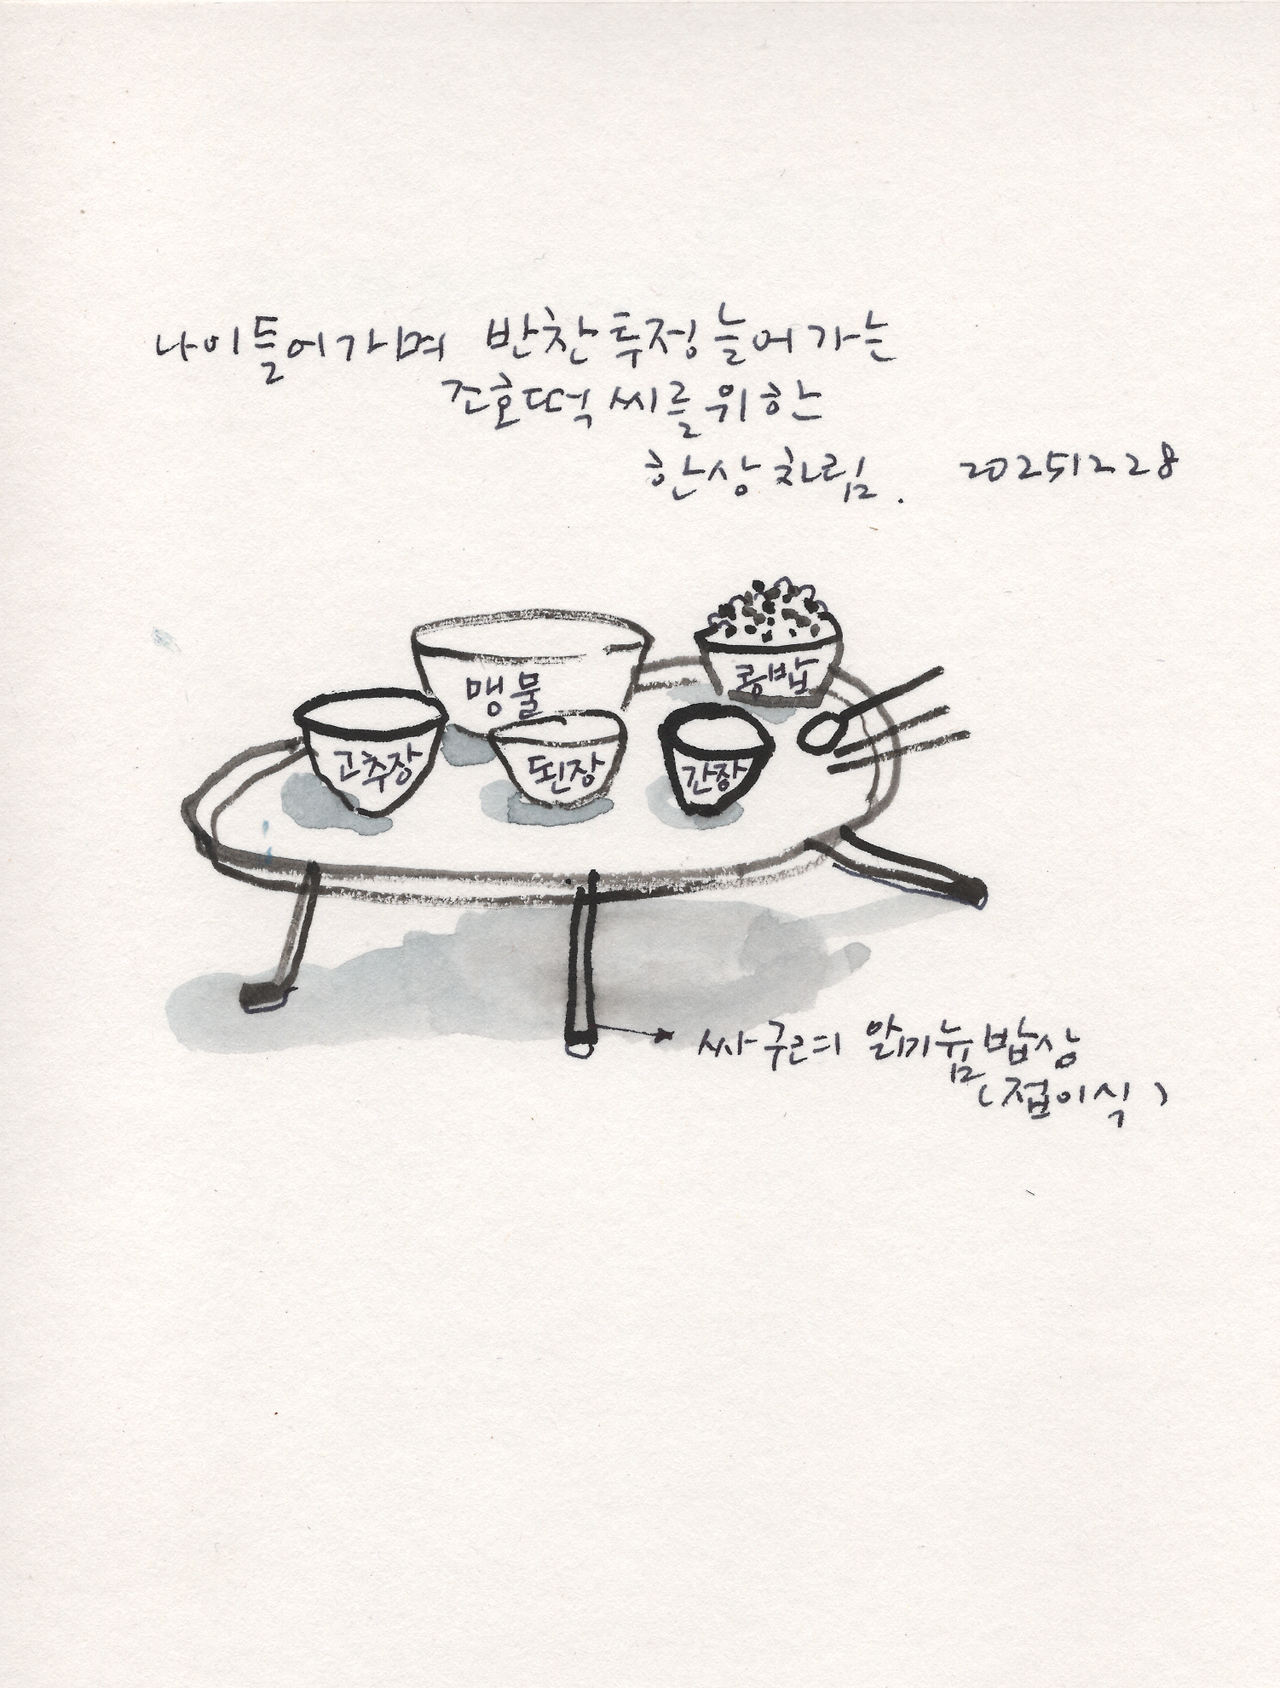 나이들어가며 반찬투정늘어가는
조호떡씨를위한
한상차림. 20251228
맹물
콩밥
고추장
된장
간장
싸구려 알미늄밥상
(접이식)